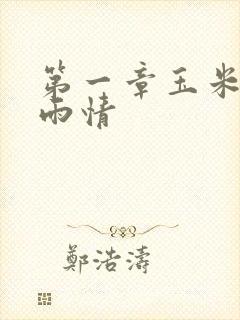 第一章玉米
雨情
鄭浩濤